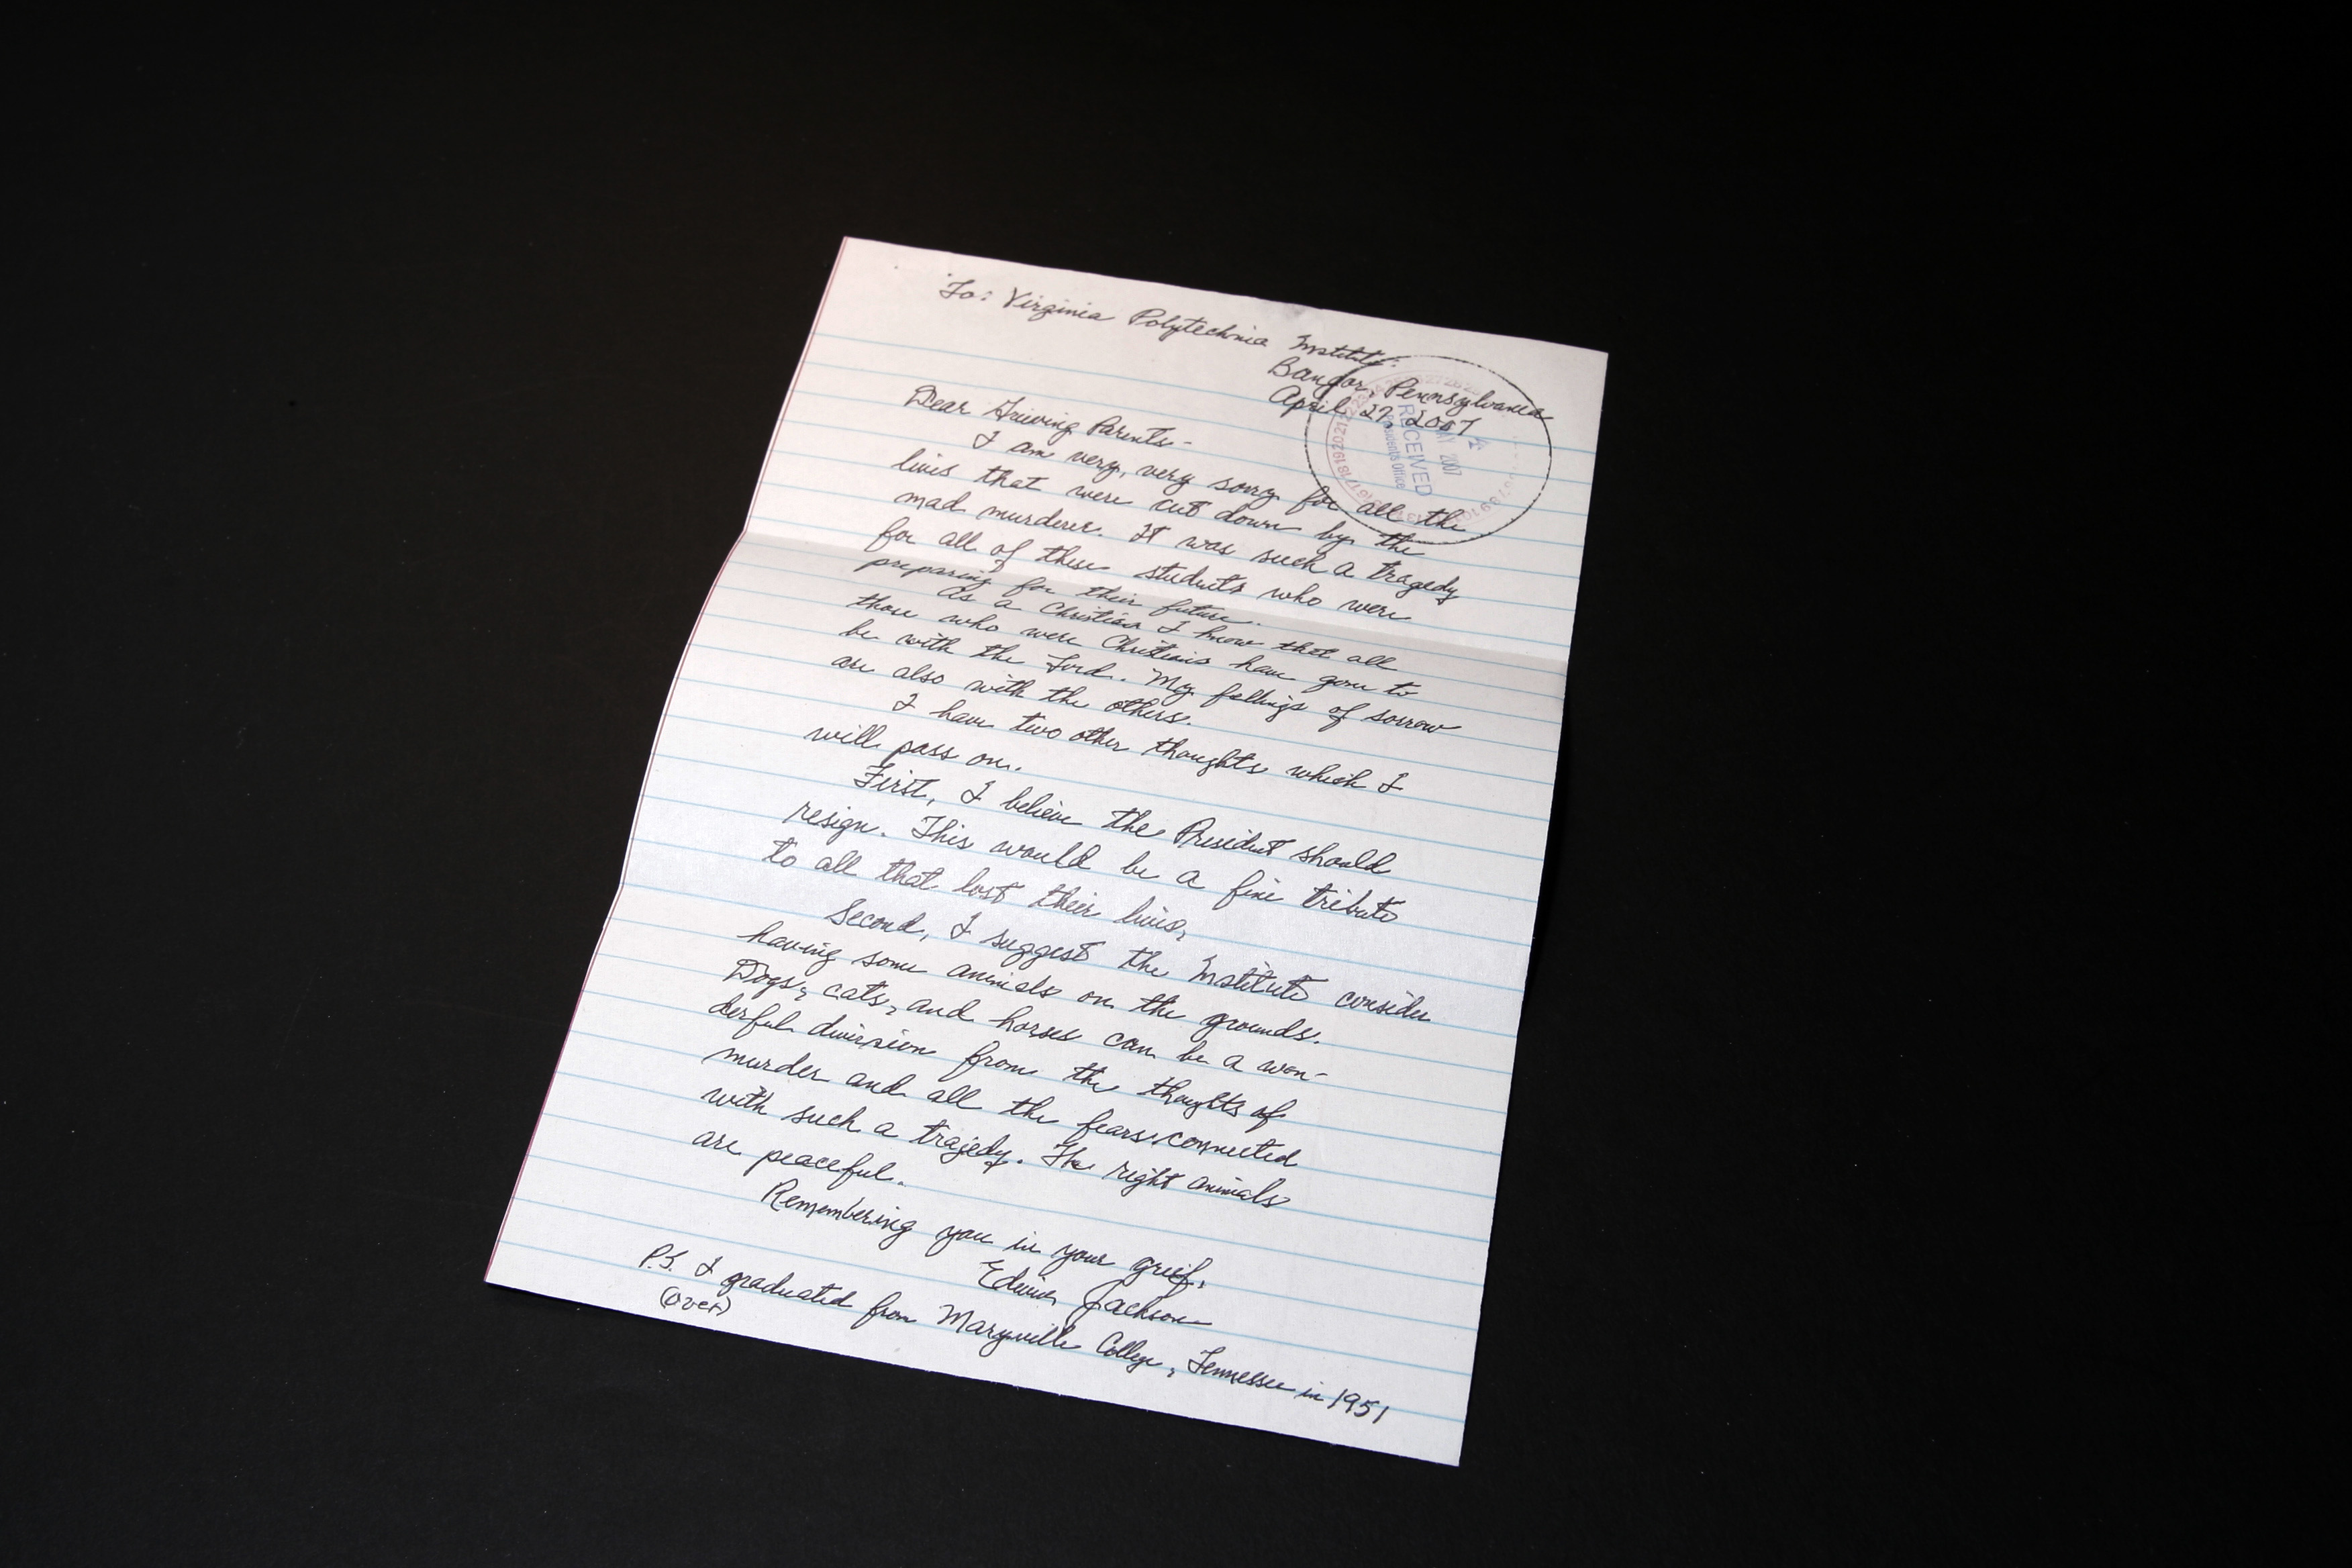 To: Virginia Polytechnia Institute:
Bangor, Pennsylvania
April 27, 2007
RECEIVED
MAY 4 2007
Presidents Office
Dear Griving Parents-
I am very, very sorry for all the
lives that were cut down by the
mad murderer. It was such a tragedy
for all of these students who were
preparing for their future.
As a Christian I know that all
those who were Christians have gone to
be with the Lord. My fellings of sorrow
are also with the others.
I have two other thoughts which I
will pass on.
First, I believe the President should
resign. This would be a fine tribute
to all that lost their lives.
Second, I suggest the Institute consider
having some animals on the grounds.
Dogs, cats, and horses can be a won-
derful diversion from the thoughts of
murder and all the fears connected
with such a trajedy. The right animals
are peaceful.
Remembering you in your grief,
Edwin Jackson
P.S. I graduated from Maryville College, Tennessee in 1951
(over)